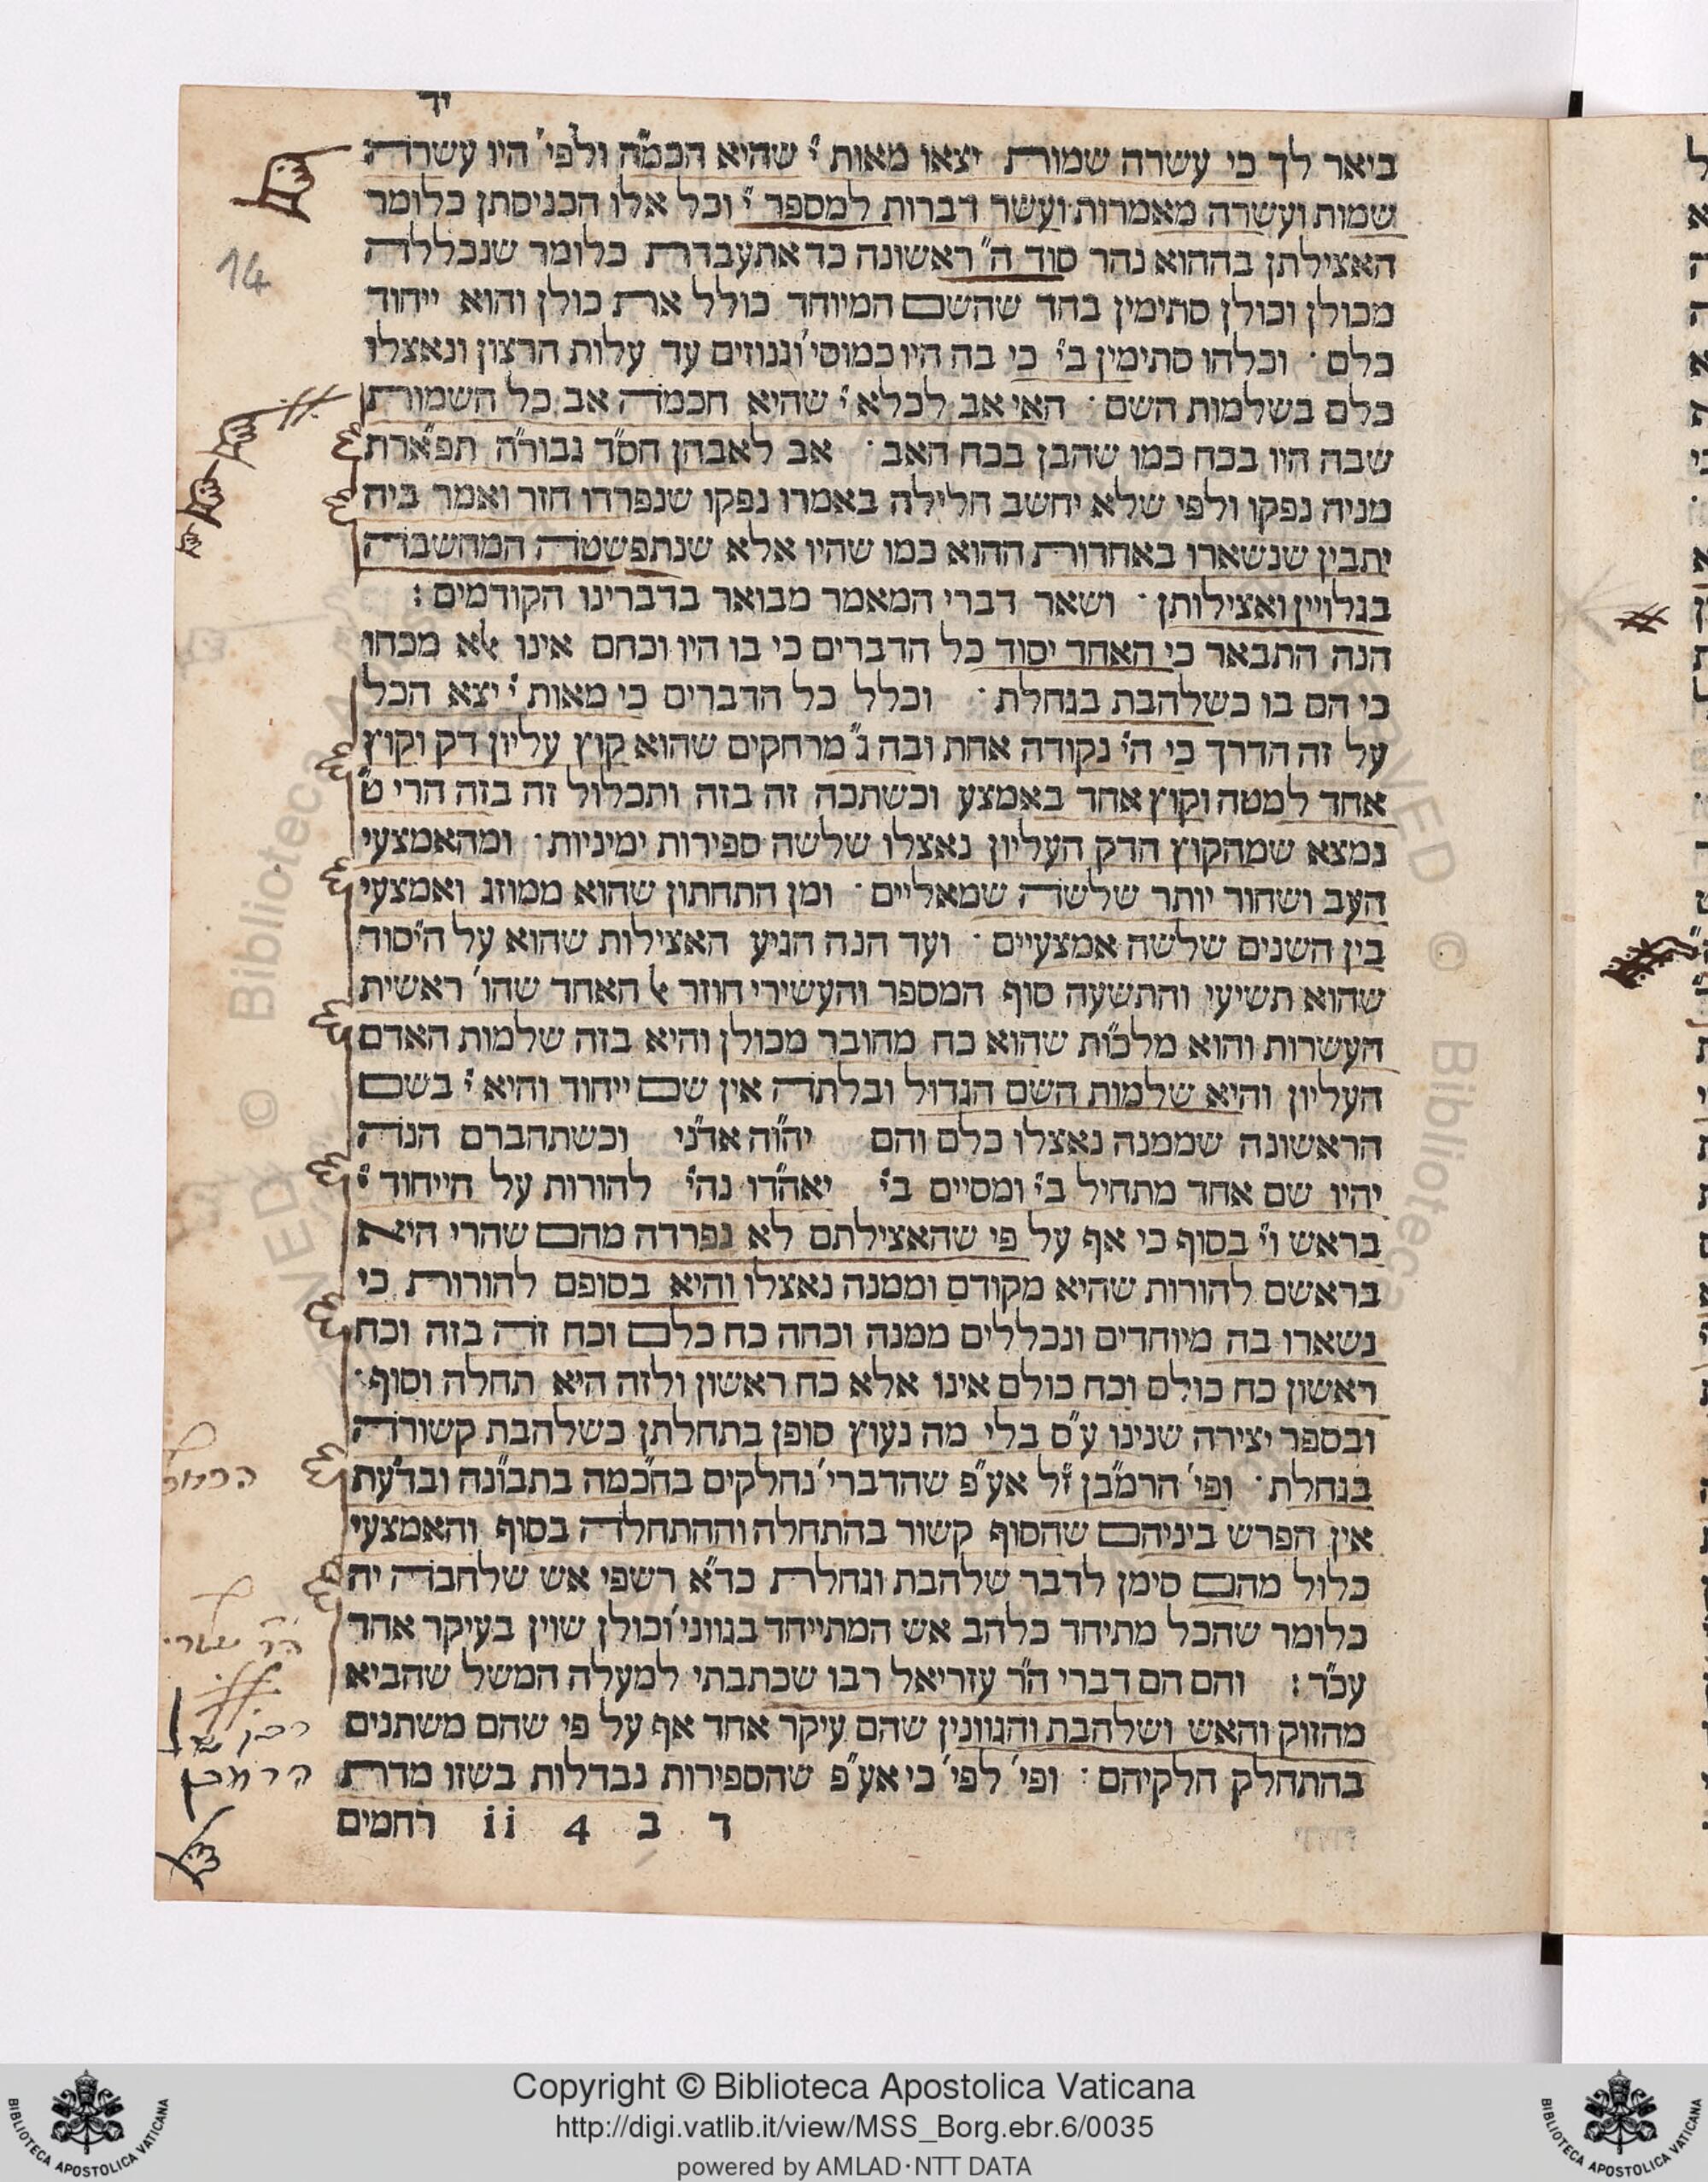 יד
ביאר לך כי עשרה שמות יצאו מאות י׳ שהיא הכמ״ה ולפי׳ היו עשרה
שמות ועשרה מאמרות ועשר דברות למספר י׳ וכל אלו הכניסתן כלומר
האצילתן בההוא נהר סוד ה״ ראשונה כד אתעבדת כלומר שנכללה
מכולן וכולן סתימין בחד שהשם המיוחד כולל את כולן והוא ייחוד
כלם · וכלהו סתימין בי׳ כי בה היו כמוסי׳ וגנוזים עד עלות הרצון ונאצלו
כלם בשלמות השם · האי אב לכלא י׳ שהיא חכמה אב כל השמות
שבה היו בכח כמו שהבן בכח האב · אב לאבהן חס״ד גבור״ה תפא״רת
מניה נפקו ולפי שלא יחשב חלילה באמרו נפקו שנפרדו חזר ואמר ביה
יתבין שנשארו באחדות ההוא כמו שהיו אלא שנתפשטה המחשבה
בגלויין ואצילותן · ושאר דברי המאמר מבואר בדברינו הקודמים :
הנה התבאר כי האחד יסוד כל הדברים כי בו היו וכחם אינו ﭏא מכחו
כי הם בו כשלהבת בגחלת · וכלל כל הדברים כי מאות י׳ יצא הכל
על זה הדרך כי הי׳ נקודה אחת ובה ג״ מרחקים שהוא קוץ עליון דק וקוץ
אחד למטה וקוץ אחד באמצע וכשתכה זה בזה ותכלול זה בזה הרי ט״
נמצא שמהקוץ הדק העליון נאצלו שלשה ספירות ימיניות · ומהאמצעי
העב ושחור יותר שלשה שמאליים · ומן התחתון שהוא ממוזג ואמצעי
בין השנים שלשה אמצעיים · ועד הנה הגיע האצילות שהוא על היסוד
שהוא תשיעי והתשעה סוף המספר והעשירי חוזר ﭏ האחד שהו׳ ראשית
העשרות והוא מלכ״ות שהוא כח מחובר מכולן והיא בזה שלמות האדם
העליון והיא שלמות השם הגדול ובלתה אין שם ייחוד והיא י׳ בשם
הראשונה שממנה נאצלו כלם והם יהו״ה אדנ״י וכשתחברם הנה
יהיו שם אחד מתחיל בי׳ ומסיים בי׳ יאהדו נהי׳ להורות על הייחוד י׳
בראש וי׳ בסוף כי אף על פי שהאצילתם לא נפרדה מהם שהרי היא
בראשם להורות שהיא מקודם וממנה נאצלו והיא בסופם להורות כי
נשארו בה מיוחדים ונכללים ממנה וכחה כח כלם וכח זה בזה וכח
ראשון כח כולם וכח כולם אינו אלא כח ראשון ולזה היא תחלה וסוף ·
ובספר יצירה שנינו ע״ס בלי מה נעוץ סופן בתחלתן כשלהבת קשורה
בגחלת · ופי׳ הרמב״ן ז״ל אע״פ שהדברי׳ נחלקים בח״כמה בתבו״נה ובד״עת
אין הפרש ביניהם שהסוף קשור בהתחלה וההתחלה בסוף והאמצעי
כלול מהם סימן לדבר שלהבת וגחלת כד״א רשפי אש שלהבת יה
כלומר שהכל מתיחד כלהב אש המתייחד בגווני׳ וכולן שוין בעיקר אחד
עכ״ד : והם הם דברי ה״ר עזריאל רבו שכתבתי למעלה המשל שהביא
מהזוק והאש ושלהבת והגוונין שהם עיקר אחד אף על פי שהם משתנים
בהתחלק חלקיהם · ופי׳ לפי׳ כי אע״פ שהספירות נבדלות בשזו מדת
ד ב 4 ii רחמים
14
Copyright © Biblioteca Apostolica Vaticana
http://digi.vatlib.it/view/MSS_Borg.ebr.6/0035
powered by AMLAD·NTT DATA
BIBLIOTECA APOSTOLICA VATICANA
BIBLIOTECA APOSTOLICA VATICANA